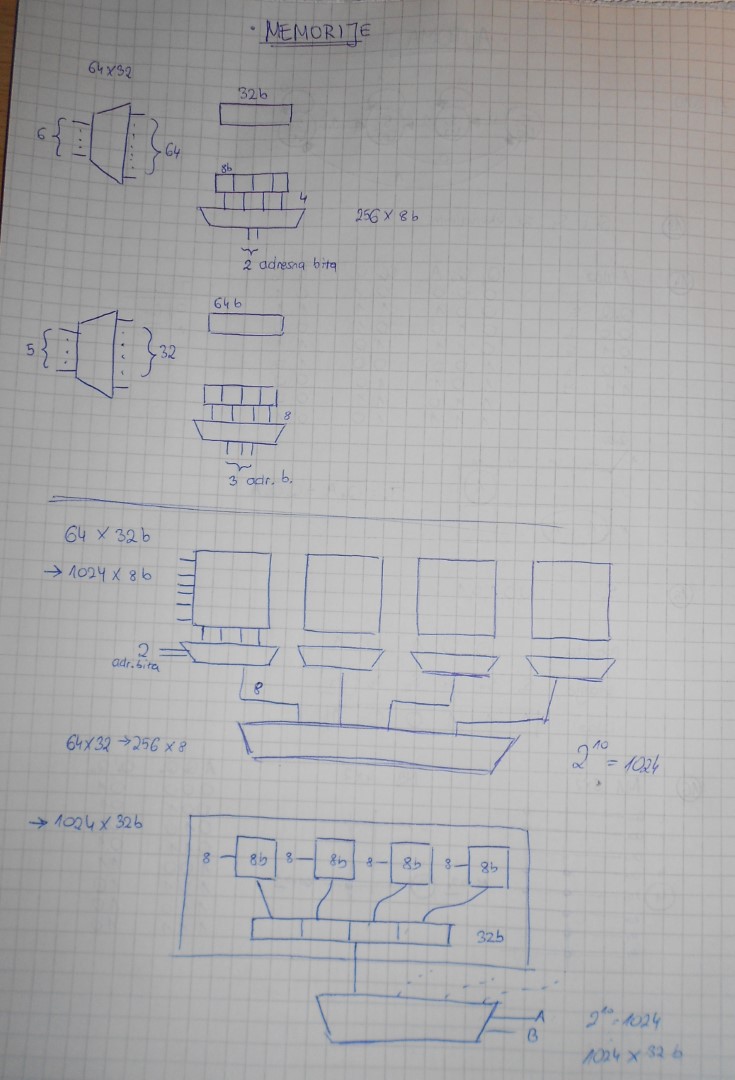 · MEMORIJE
64×32
32b
6
64
8b
4
256 × 8b
2 adresna bita
64b
5
32
8
3 adr. b.
64 × 32b
→ 1024 × 8b
2
adr. bita
8
64×32 → 256 × 8
2¹⁰ = 1024
→ 1024 × 32b
8 8b 8 8b 8 8b 8 8b
32b
A
B
2¹⁰ = 1024
1024 × 32 b